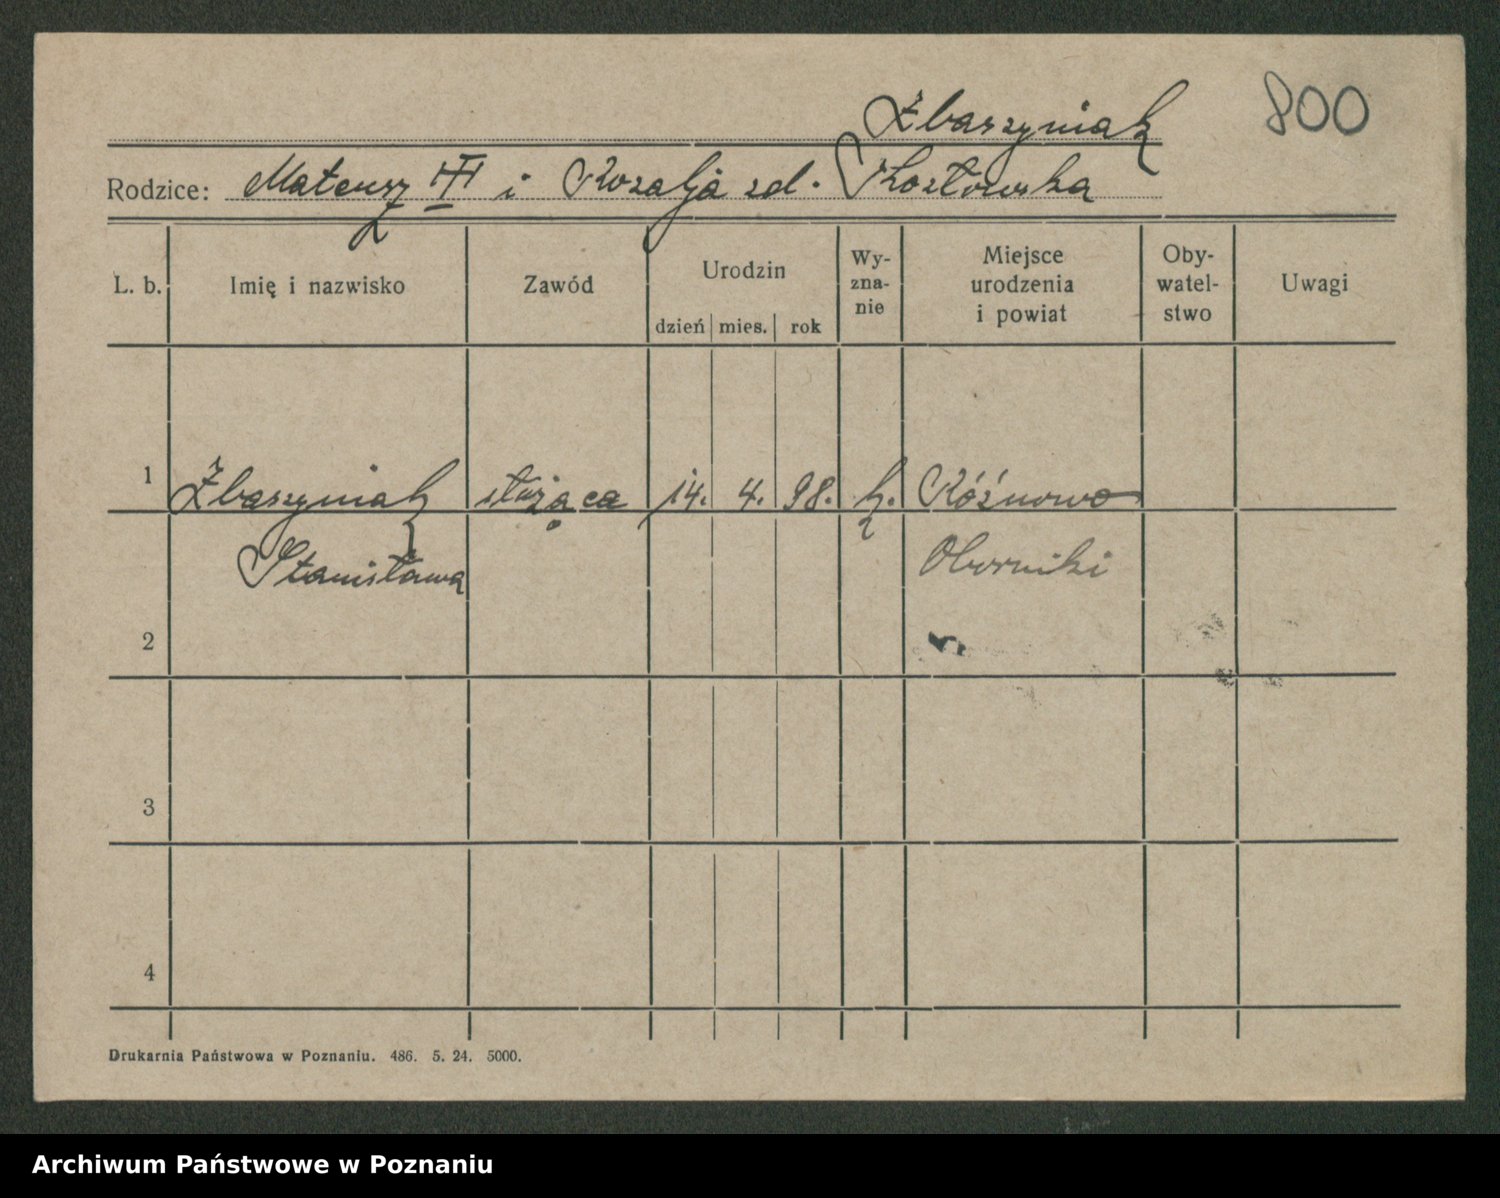 Zbaszyniak
800
Rodzice: Mateusz i Rozalja zd. Kozłowska
L. b. Imię i nazwisko Zawód Urodzin dzień mies. rok Wy-zna-nie Miejsce urodzenia i powiat Oby-watel-stwo Uwagi
1 Zbaszyniak służąca 14. 4. 98. k. Różnowo
Stanisława Oborniki
2
3
4
Drukarnia Państwowa w Poznaniu. 486. 5. 24. 5000.
Archiwum Państwowe w Poznaniu